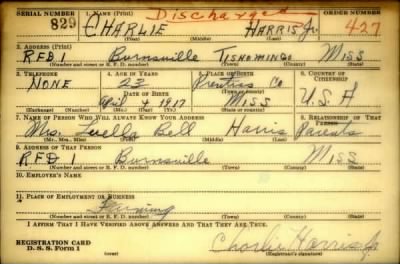 Discharged
SERIAL NUMBER 1. NAME (Print) ORDER NUMBER
829 CHARLIE HARRIS Jr 427
(First) (Middle) (Last)
2. ADDRESS (Print)
RFD 1 Burnsville Tishomingo Miss
(Number and street or R. F. D. number) (Town) (County) (State)
3. TELEPHONE 4. AGE IN YEARS 5. PLACE OF BIRTH 6. COUNTRY OF CITIZENSHIP
NONE 23 Prentiss Co
DATE OF BIRTH
April 4 1917 Miss U.S.A
(Exchange) (Number) (Mo.) (Day) (Yr.) (State or country)
7. NAME OF PERSON WHO WILL ALWAYS KNOW YOUR ADDRESS 8. RELATIONSHIP OF THAT PERSON
Mrs. Luella Bell Harris Parents
(Mr., Mrs., Miss) (First) (Middle) (Last)
9. ADDRESS OF THAT PERSON
RFD 1 Burnsville Miss
(Number and street or R. F. D. number) (Town) (County) (State)
10. EMPLOYER'S NAME
11. PLACE OF EMPLOYMENT OR BUSINESS
Farming
(Number and street or R. F. D. number) (Town) (County) (State)
I AFFIRM THAT I HAVE VERIFIED ABOVE ANSWERS AND THAT THEY ARE TRUE.
REGISTRATION CARD
D. S. S. Form 1
Charlie Harris Jr
(Registrant's signature)